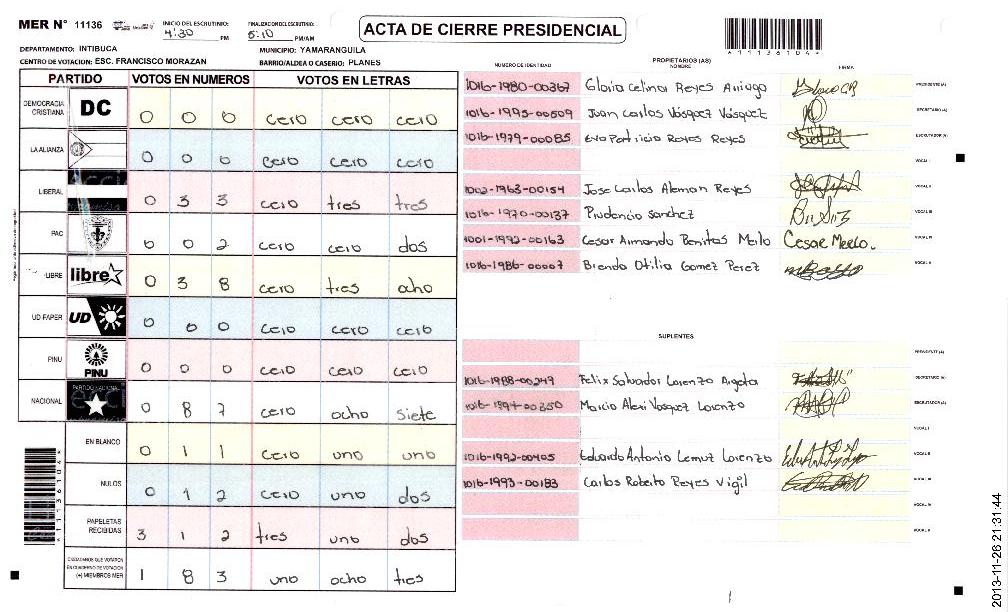 MER N° 11136 INICIO DEL ESCRUTINIO: 4:30 PM FINALIZACION DEL ESCRUTINIO: 5:10 PM/AM
ACTA DE CIERRE PRESIDENCIAL
*11136104*
DEPARTAMENTO: INTIBUCA MUNICIPIO: YAMARANGUILA
CENTRO DE VOTACION: ESC. FRANCISCO MORAZAN BARRIO/ALDEA O CASERIO: PLANES
PARTIDO VOTOS EN NUMEROS VOTOS EN LETRAS
DEMOCRACIA CRISTIANA DC 0 0 0 cero cero cero
LA ALIANZA 0 0 0 cero cero cero
LIBERAL 0 3 3 cero tres tres
PAC 0 0 2 cero cero dos
LIBRE libre 0 3 8 cero tres ocho
UD-FAPER UD 0 0 0 cero cero cero
PINU PINU 0 0 0 cero cero cero
NACIONAL PARTIDO NACIONAL 0 8 7 cero ocho siete
EN BLANCO 0 1 1 cero uno uno
NULOS 0 1 2 cero uno dos
PAPELETAS RECIBIDAS 3 1 2 tres uno dos
CIUDADANOS QUE VOTARON EN CUADERNO DE VOTACION (+) MIEMBROS MER 1 8 3 uno ocho tres
*11136104*
NUMERO DE IDENTIDAD PROPIETARIOS (AS) NOMBRE FIRMA
1016-1980-00367 Gloria Celina Reyes Arriaga PRESIDENTE (A)
1016-1995-00509 Juan Carlos Vásquez Vásquez SECRETARIO (A)
1016-1979-00085 Eva Patricia Reyes Reyes ESCRUTADOR (A)
VOCAL I
1002-1963-00154 Jose Carlos Aleman Reyes VOCAL II
1016-1970-00137 Prudencio Sanchez VOCAL III
1001-1992-00163 Cesar Armando Benitas Merlo Cesar Merlo. VOCAL IV
1016-1986-00007 Brenda Otilia Gomez Perez VOCAL V
SUPLENTES
PRESIDENTE (A)
1016-1988-00249 Felix Salvador Lorenzo Argota SECRETARIO (A)
1016-1994-00350 Marcio Alexi Vasquez Lorenzo ESCRUTADOR (A)
VOCAL I
1016-1992-00405 Eduardo Antonio Lemuz Lorenzo VOCAL II
1016-1993-00183 Carlos Roberto Reyes Vigil VOCAL III
VOCAL IV
VOCAL V
2013-11-26 21:31:44